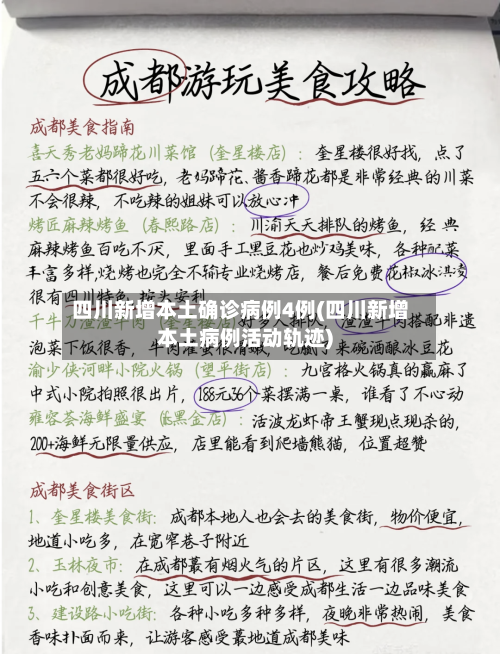 成都游玩美食攻略
成都美食指南
喜天秀老妈蹄花川菜馆（奎星楼店）：奎星楼很好找，点了
五六个菜都很好吃，老妈蹄花、酱香蹄花都是非常经典的川菜
不会很辣，不吃辣的姐妹可以放心冲
烤匠麻辣烤鱼（春熙路店）：川渝天天排队的烤鱼，经典
麻辣烤鱼百吃不厌，里面手工黑豆花也炒鸡美味，各种配菜
丰富多样，烧烤也完全不输专业烧烤店，餐后免费花椒冰淇淋
很有四川特色
四川新增本土确诊病例4例(四川新增
本土病例活动轨迹)
好多人排队，渣渣牛肉搭配非遗
泡菜下饭很香，吃腻了来碗酒酿冰豆花
渝少侠河畔小院火锅（望平街店）：九宫格火锅真的赢麻了
中式小院拍照很出片，188元36个菜摆满一桌，谁看了不心动
雍容荟海鲜盛宴（砝黑金店）：活波龙虾帝王蟹现点现杀的，
200+海鲜无限量供应，店里能看到爬墙熊猫，位置超赞
成都美食街区
1、奎星楼美食街：成都本地人也会去的美食街，物价便宜，
地道小吃多，在宽窄巷子附近
2、玉林夜市：在成都蕞有烟火气的片区，这里有很多潮流
小吃和创意美食，这里可以一边感受成都生活一边品味美食
3、建设路小吃街：各种小吃多种多样，夜晚非常热闹，美食
香味扑面而来，让游客感受蕞地道成都美味